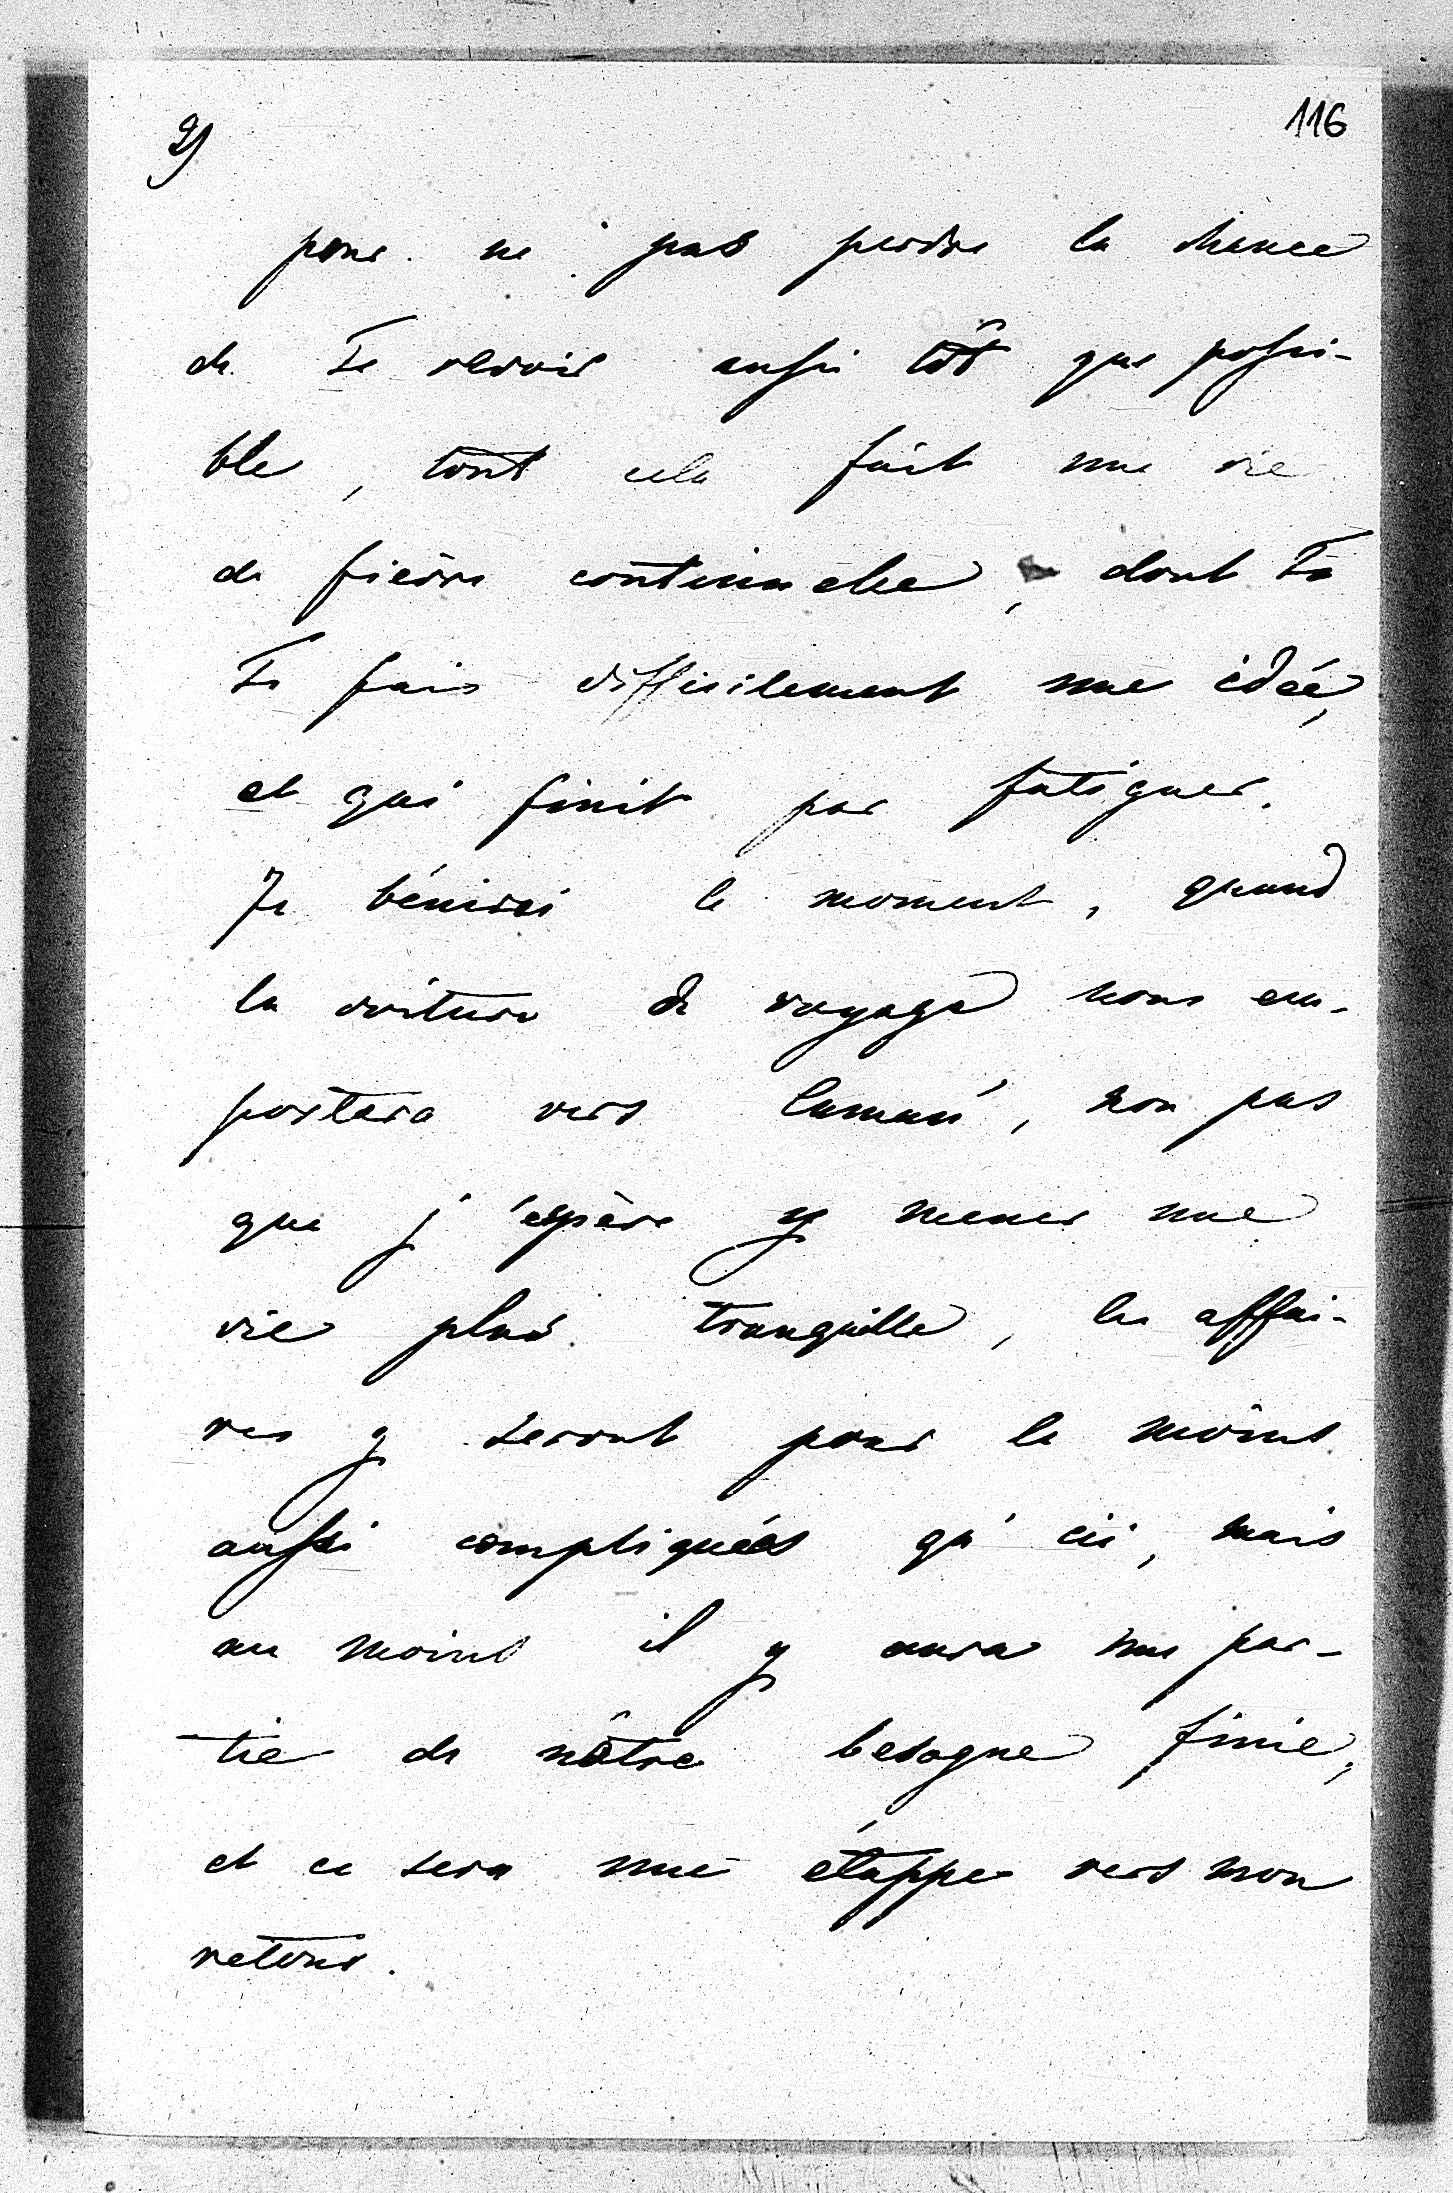 2)
116
pour ne pas perdre la chance
de Te revoir aussi tôt que possi-
ble, tout cela fait une vie
de fièvre continuelle, dont Tu
Te fais difficilement une idée,
et qui finit par fatiguer.
Je bénirai le moment, quand
la voiture de voyage nous em-
portera vers non pas
que j'espère y mener une
vie plus tranquille, les affai-
res y seront pour le moins
aussi compliquées qu'ici, mais
au moins il y aura une par-
tie de nôtre besogne finie,
et ce sera une étappe vers mon
retour.